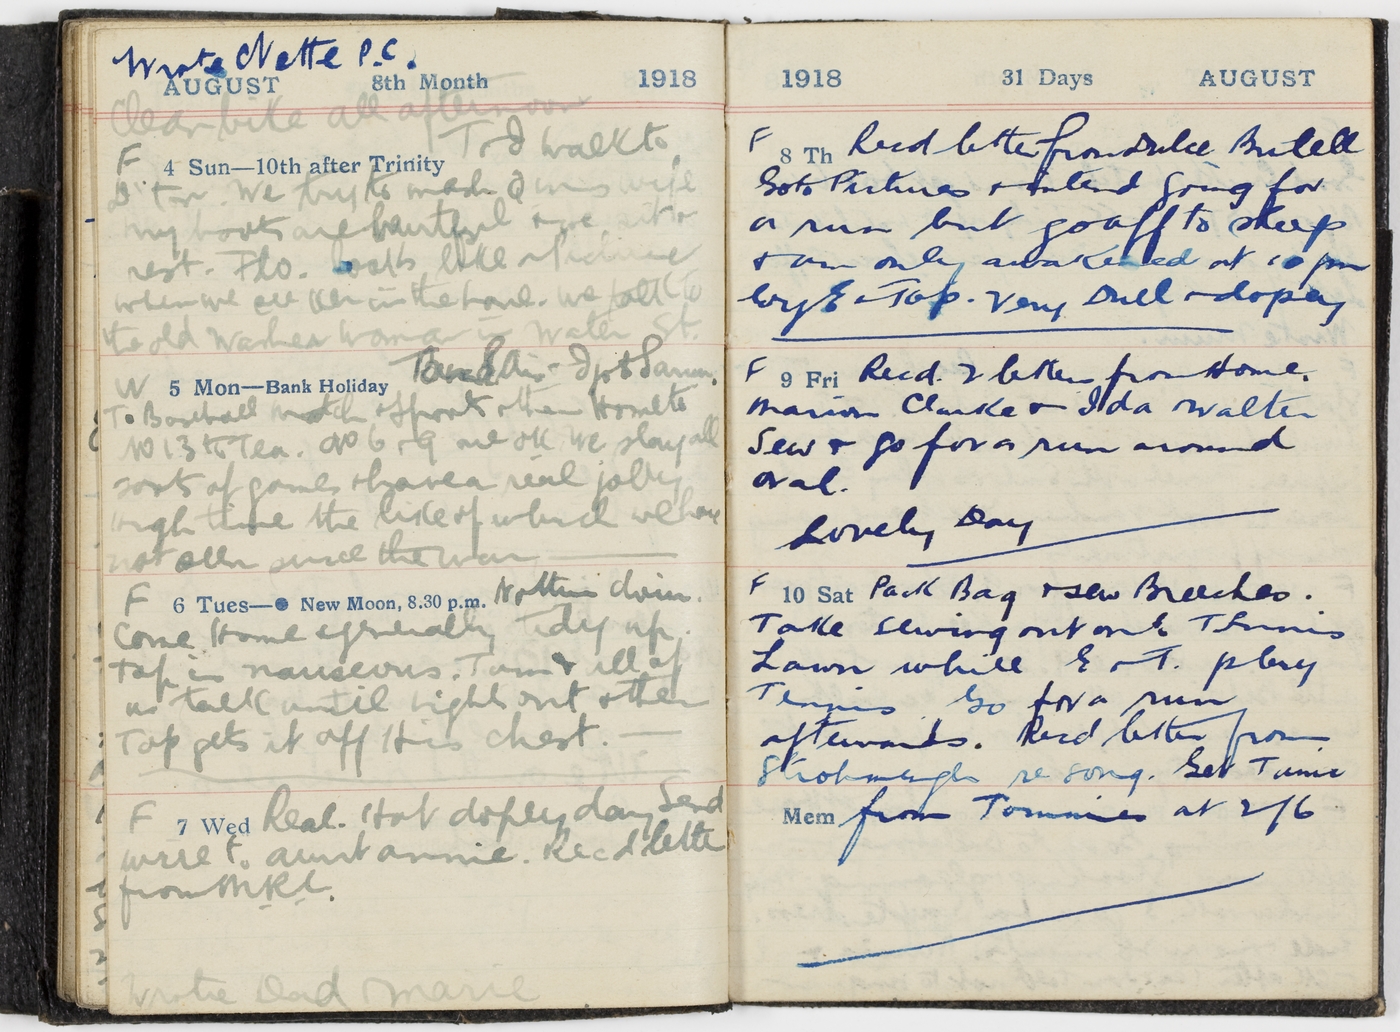 Wrote Nette P.C.
AUGUST 8th Month 1918
Clean bike all afternoon
T & I walk to
F 4 Sun—10th after Trinity
We try to wife
my boots are beautiful + we sit +
rest. Flo. looks like a picture
when we see her in the We talk to
the old Washer Woman in Water St.
W 5 Mon—Bank Holiday
To Baseball match + Sports + then Home to
No 13 to Tea. No 6 + 9 are OK We play all
sorts of games + have a real jolly
high time the like of which we have
not seen since the war
F 6 Tues—● New Moon, 8.30 p.m. Nothin doin.
Come Home + generally Tidy up.
Tap is nauseous. all of
us talk until lights out + then
Tap gets it off His chest.
F 7 Wed Real. Hot dopey day Send
wire to aunt annie. Recd letter
from
Wrote Dad Marie
1918 31 Days AUGUST
F 8 Th Recd letter from Dulcie Butell
Go to Pictures + intend Going for
a run but go off to sleep
+ am only awakened at 10 pm
by E + Tap. Very Dull + dopey
F 9 Fri Recd. 2 letters from Home.
Marion Clarke + Ida Walter
Sew + go for a run around
oval.
Lovely Day
F 10 Sat Pack Bag + sew Breeches.
Take sewing out on to Tennis
Lawn while E + T. play
Tennis Go for a run
afterwards. Recd letter from
re song. Get Tunic
Mem from Tommies at 2/6